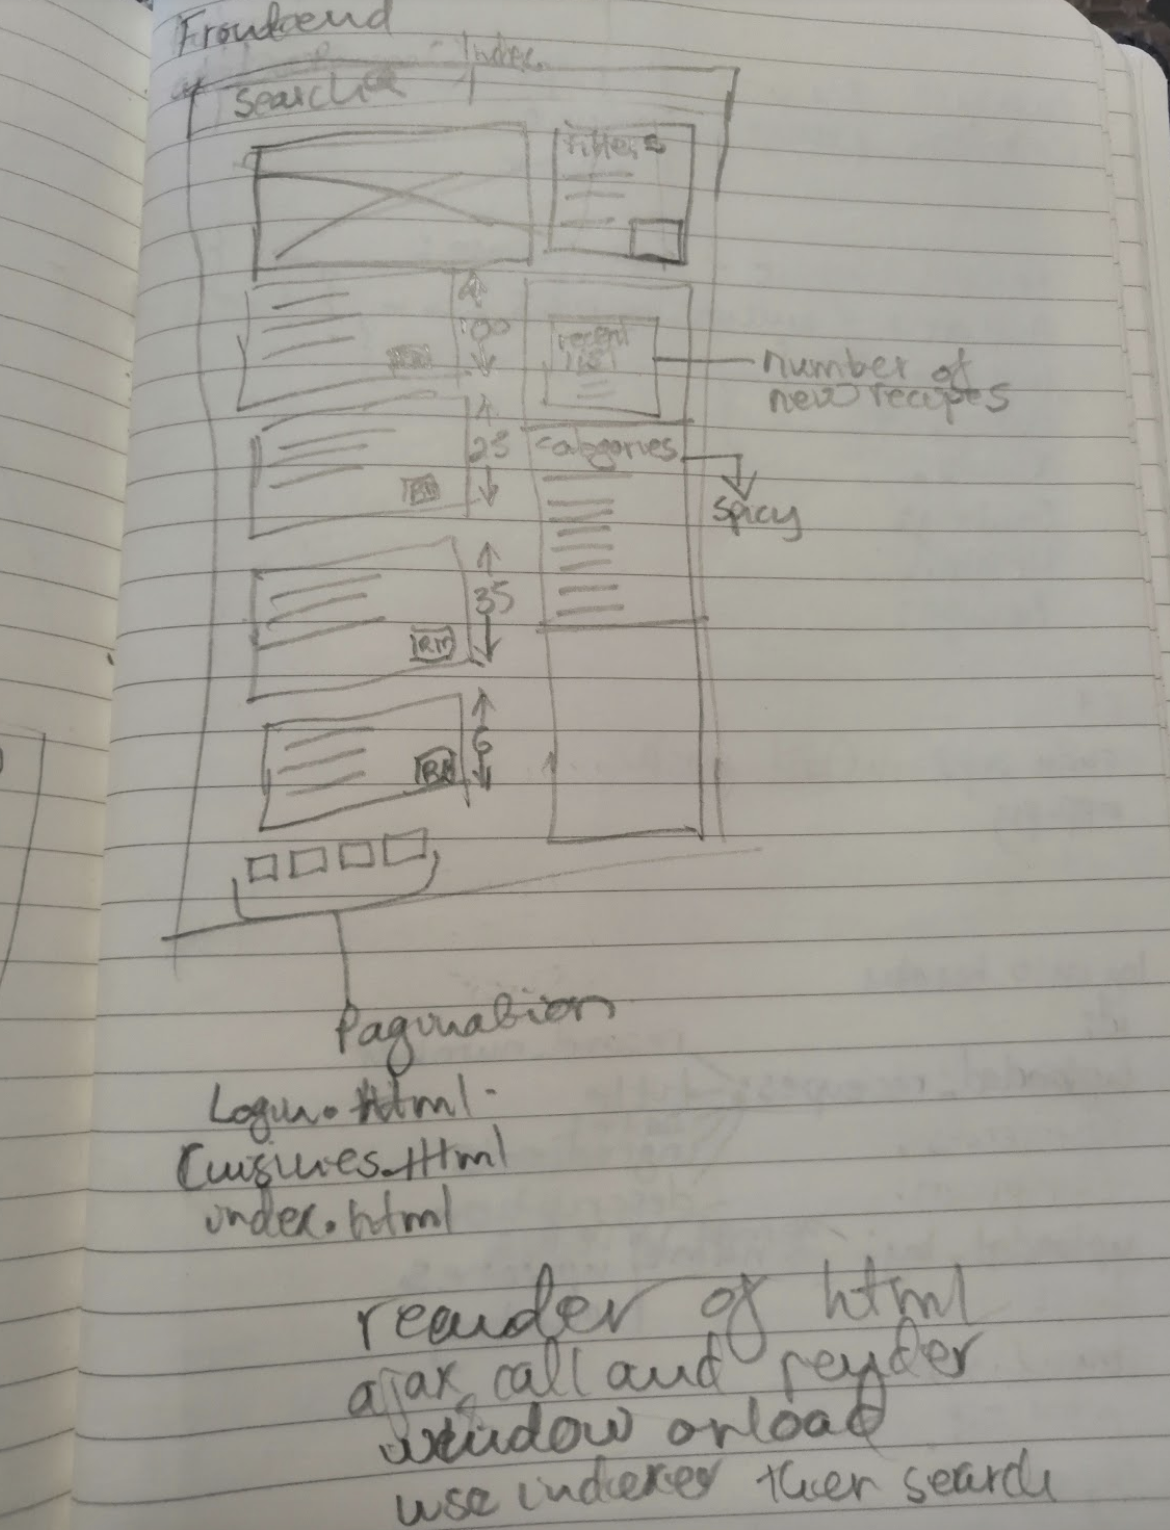 Frontend
Index
Search
Filters
100
recent
list
number of
new recipes
23
categories
spicy
35
RM
6
RM
Pagination
Login.html
Cuisines.Html
index.html
reander of html
ajax call and render
window onload
use indexer then search